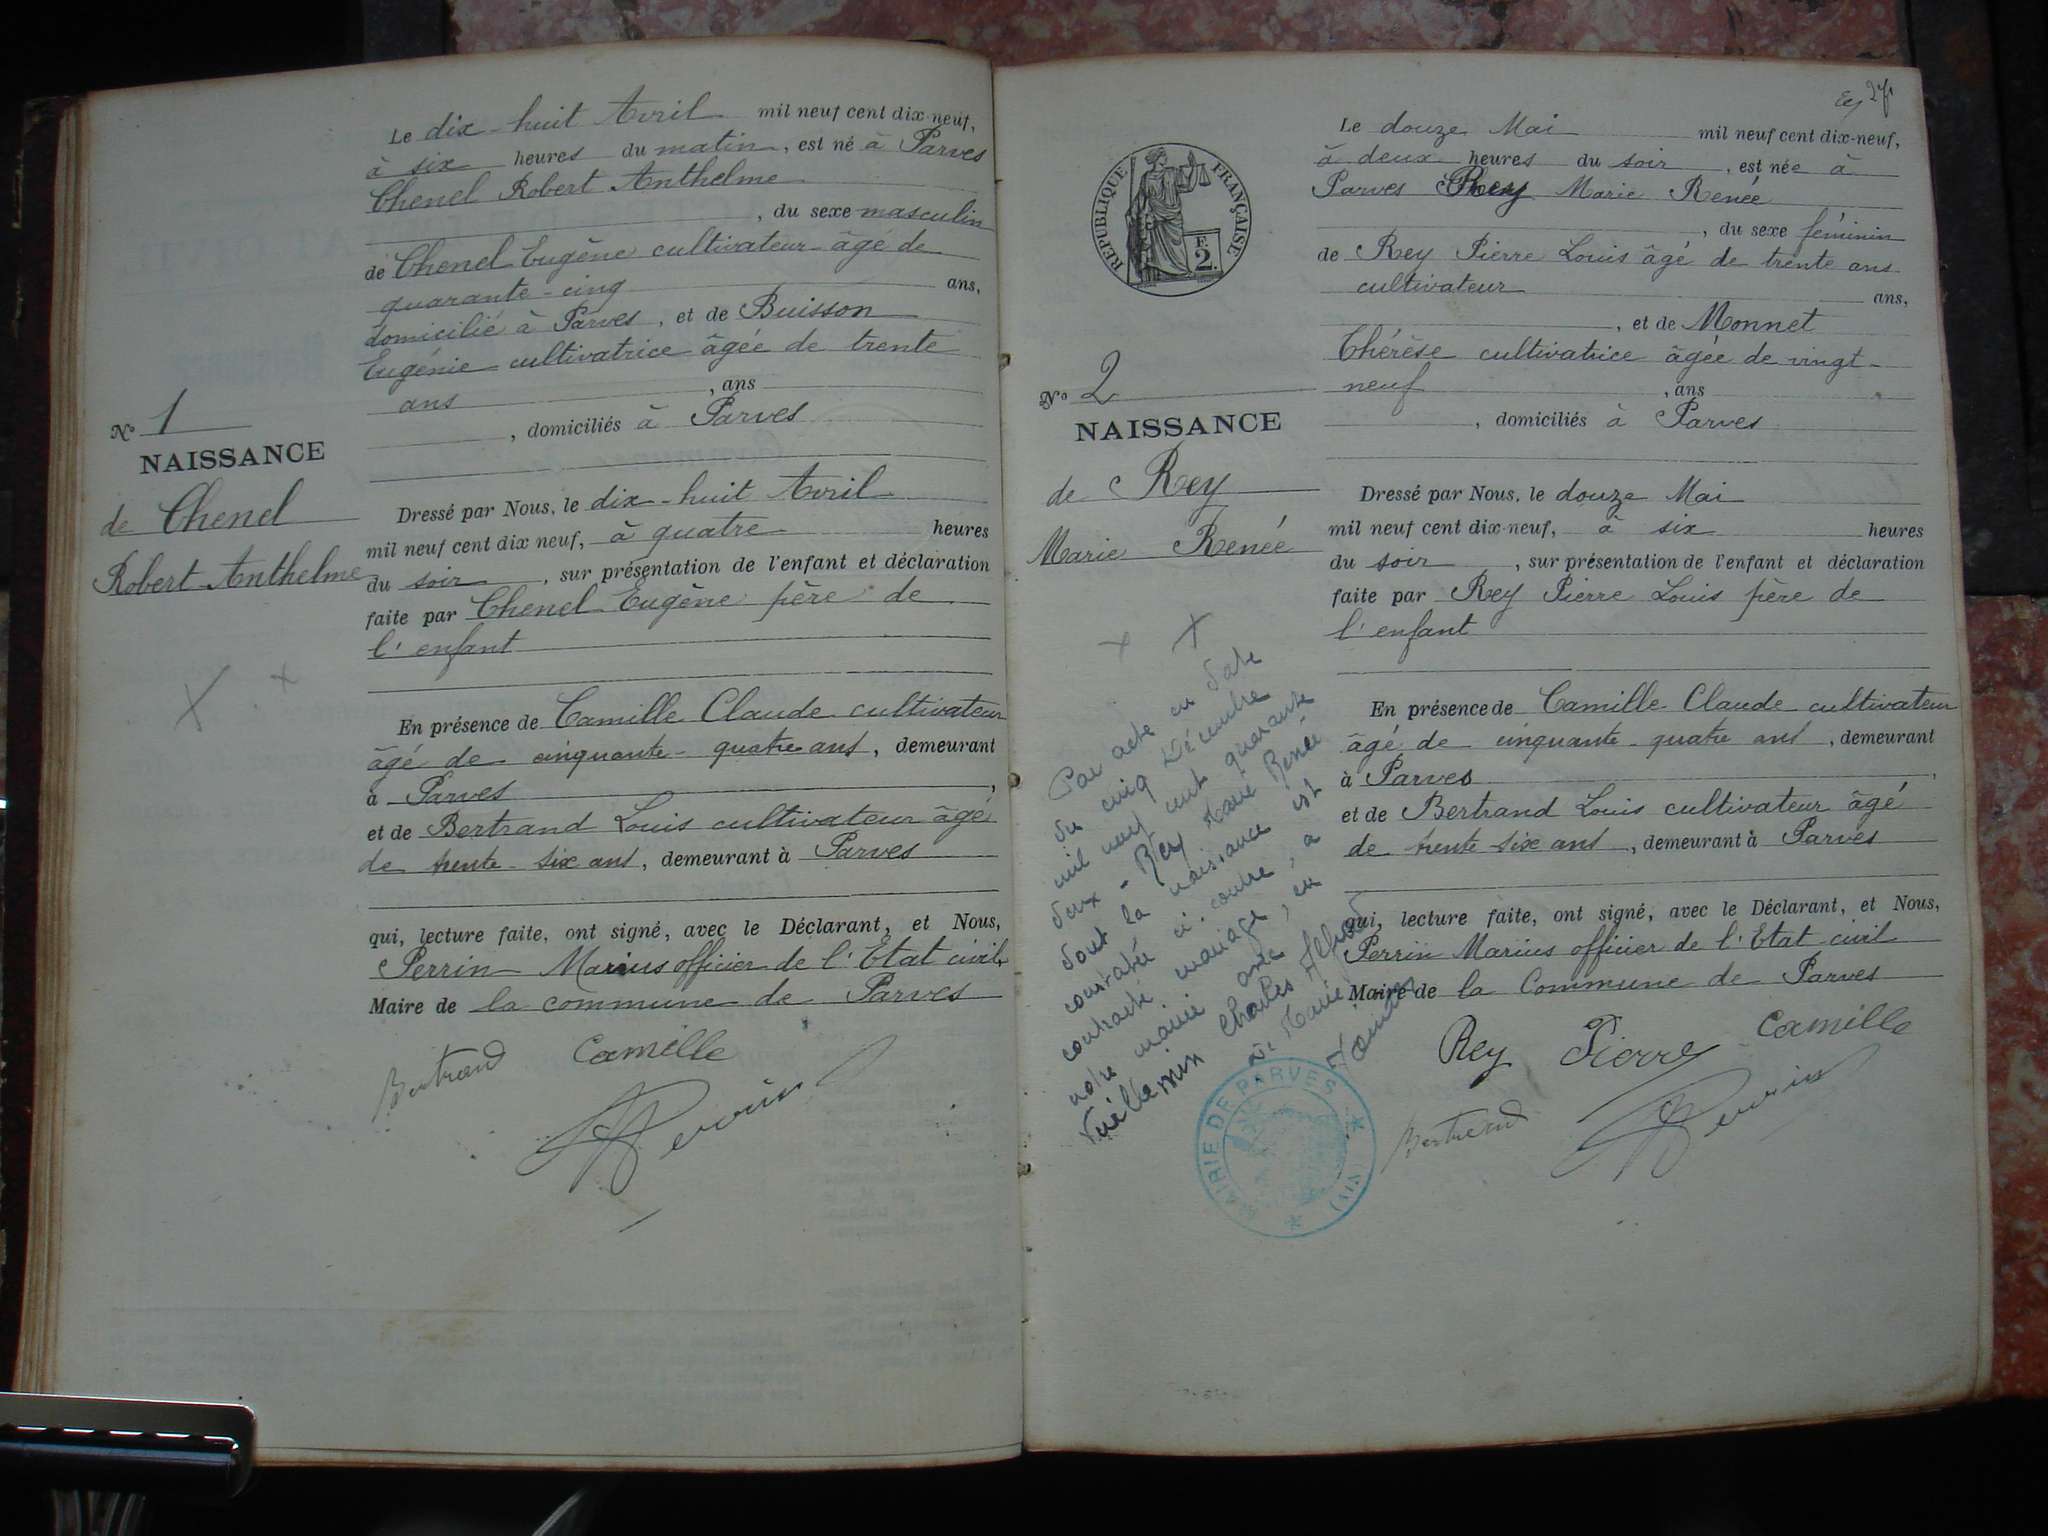 Le dix-huit Avril mil neuf cent dix-neuf,
à six heures du matin, est né à Parves
Chenel Robert Anthelme
, du sexe masculin
de Chenel Eugène cultivateur âgé de
quarante-cinq ans,
domicilié à Parves, et de Buisson
Eugénie cultivatrice âgée de trente
ans , ans
, domiciliés à Parves
No 1
NAISSANCE
de Chenel
Robert Anthelme
Dressé par Nous, le dix-huit Avril
mil neuf cent dix neuf, à quatre heures
du soir, sur présentation de l'enfant et déclaration
faite par Chenel Eugène père de
l'enfant
En présence de Camille Claude cultivateur
âgé de cinquante-quatre ans, demeurant
à Parves,
et de Bertrand Louis cultivateur âgé
de trente-six ans, demeurant à Parves
qui, lecture faite, ont signé, avec le Déclarant, et Nous,
Perrin Marius officier de l'Etat civil,
Maire de la commune de Parves
Bertrand Camille
Perrin
27
Le douze Mai mil neuf cent dix-neuf,
à deux heures du soir, est née à
Parves Rey Marie Renée
, du sexe féminin
de Rey Pierre Louis âgé de trente ans
cultivateur ans,
, et de Monnet
Thérèse cultivatrice âgée de vingt-
neuf , ans
, domiciliés à Parves
RÉPUBLIQUE FRANÇAISE
F.
2.
No 2
NAISSANCE
de Rey
Marie Renée
Dressé par Nous, le douze Mai
mil neuf cent dix-neuf, à six heures
du soir, sur présentation de l'enfant et déclaration
faite par Rey Pierre Louis père de
l'enfant
En présence de Camille Claude cultivateur
âgé de cinquante-quatre ans, demeurant
à Parves,
et de Bertrand Louis cultivateur âgé
de trente-six ans, demeurant à Parves
qui, lecture faite, ont signé, avec le Déclarant, et Nous,
Perrin Marius officier de l'Etat civil
Maire de la Commune de Parves
Rey Pierre Camille
Bertrand Perrin
Par acte en date
du cinq Décembre
mil neuf cent quarante
deux - Rey Marie Renée
dont la naissance est
constatée ci-contre, a
contracté mariage, en
notre mairie avec
Vuillemin Charles Alfred
Le Maire
MAIRIE DE PARVES
(AIN)